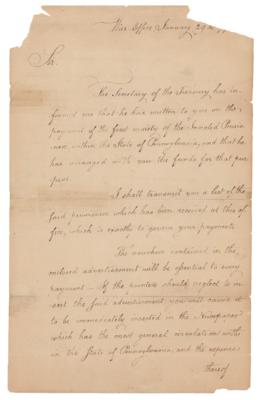 War Office January 29th
Sir.
The Secretary of the Treasury has in-
formed me that he has written to you on the
payment of the first moiety of the Invalid Pensio-
ners within the State of Pennsylvania, and that he
has arranged with you the funds for that pur
pose.
I shall transmit you a list of the
said pensioners which has been received at this of
fice, which is exactly to govern your payments
The vouchers contained in the
enclosed advertisement will be essential to every
payment — If the printers should neglect to in
sert the said advertisement, you will cause it
to be immediately inserted in the Newspaper
which has the most general circulation with
in the State of Pennsylvania, and the expence
thereof